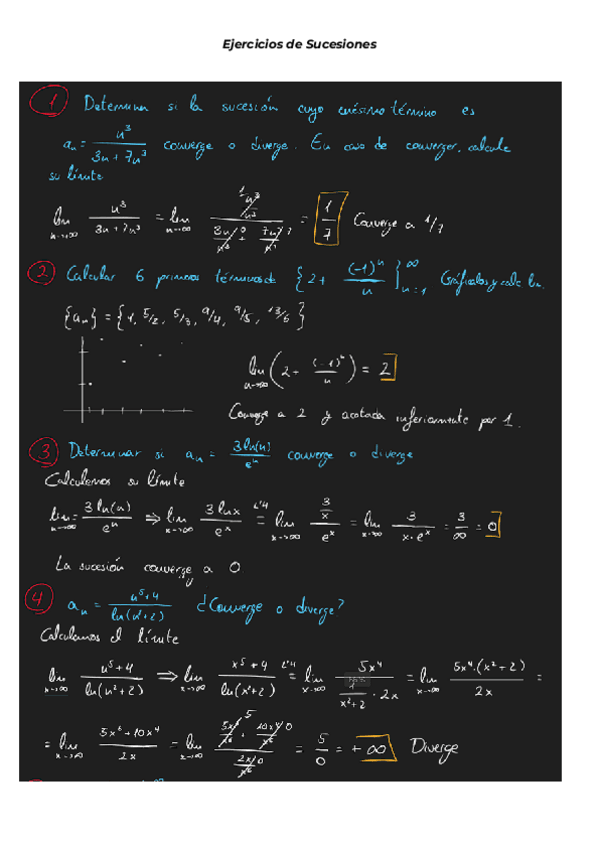 Ejercicios de Sucesiones
1 Determinar si la sucesión cuyo enésimo término es
aₙ = n³/(3n + 7n³) converge o diverge. En caso de converger, calcule
su límite
lim n→∞ n³/(3n + 7n³) = lim n→∞ (n³/n³)/(3n/n³ + 7n³/n³) = 1/7 Converge a 1/7
2 Calcular 6 primeros términos de {2 + (-1)ⁿ/n}ₙ₌₁^∞ Gráficalos y calc lim.
{aₙ} = {1, 5/2, 5/3, 9/4, 9/5, 13/6}
lim n→∞ (2 + (-1)ⁿ/n) = 2
Converge a 2 y acotada inferiormente por 1.
3 Determinar si aₙ = 3 ln(n)/eⁿ converge o diverge
Calculemos su límite
lim n→∞ = 3 ln(n)/eⁿ ⇒ lim x→∞ 3 ln x/eˣ L'H = lim x→∞ (3/x)/eˣ = lim x→∞ 3/(x·eˣ) = 3/∞ = 0
La sucesión converge a 0
4 aₙ = (n⁵+4)/ln(n²+2) ¿Converge o diverge?
Calculamos el límite
lim n→∞ (n⁵+4)/ln(n²+2) ⇒ lim x→∞ (x⁵+4)/ln(x²+2) L'H = lim x→∞ 5x⁴/(1/(x²+2) · 2x) = lim x→∞ 5x⁴·(x²+2)/2x =
= lim x→∞ (5x⁶+10x⁴)/2x = lim x→∞ (5x⁶/x⁶ + 10x⁴/x⁶)/(2x/x⁶) = 5/0 = +∞ Diverge